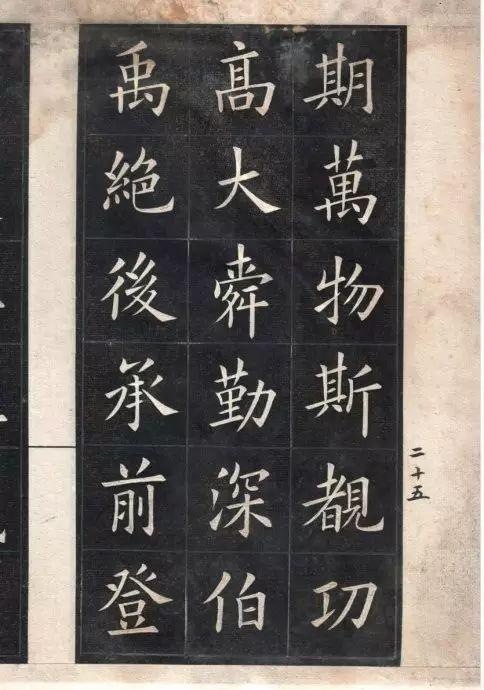 期萬物斯覩功
髙大舜勤深伯
禹絶後承前登
二十五